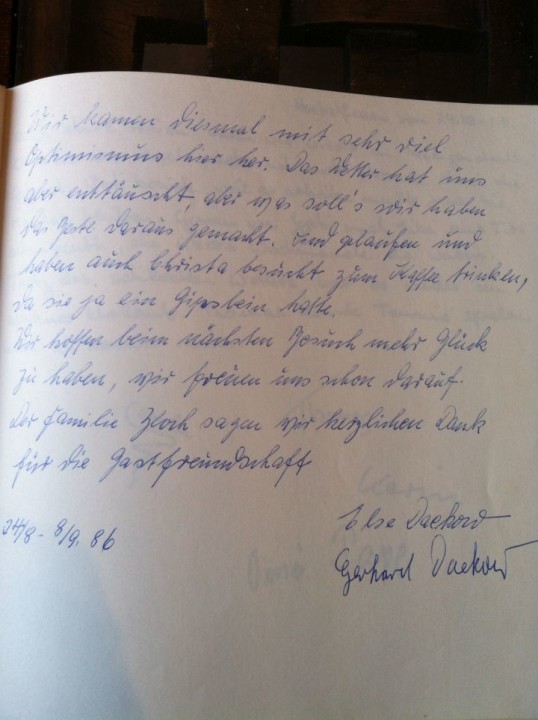 Wir kamen diesmal mit sehr viel
Optimismus hier her. Das Wetter hat uns
aber enttäuscht, aber was soll's wir haben
das Beste daraus gemacht. Sind gelaufen und
haben auch Christa besucht zum Kaffee trinken,
da sie ja ein Gipsbein hatte.
Wir hoffen beim nächsten Besuch mehr Glück
zu haben, wir freuen uns schon darauf.
Der Familie Zloch sagen wir herzlichen Dank
für die Gastfreundschaft
24/8 - 8/9. 86
Else Dackow
Gerhard Dackow